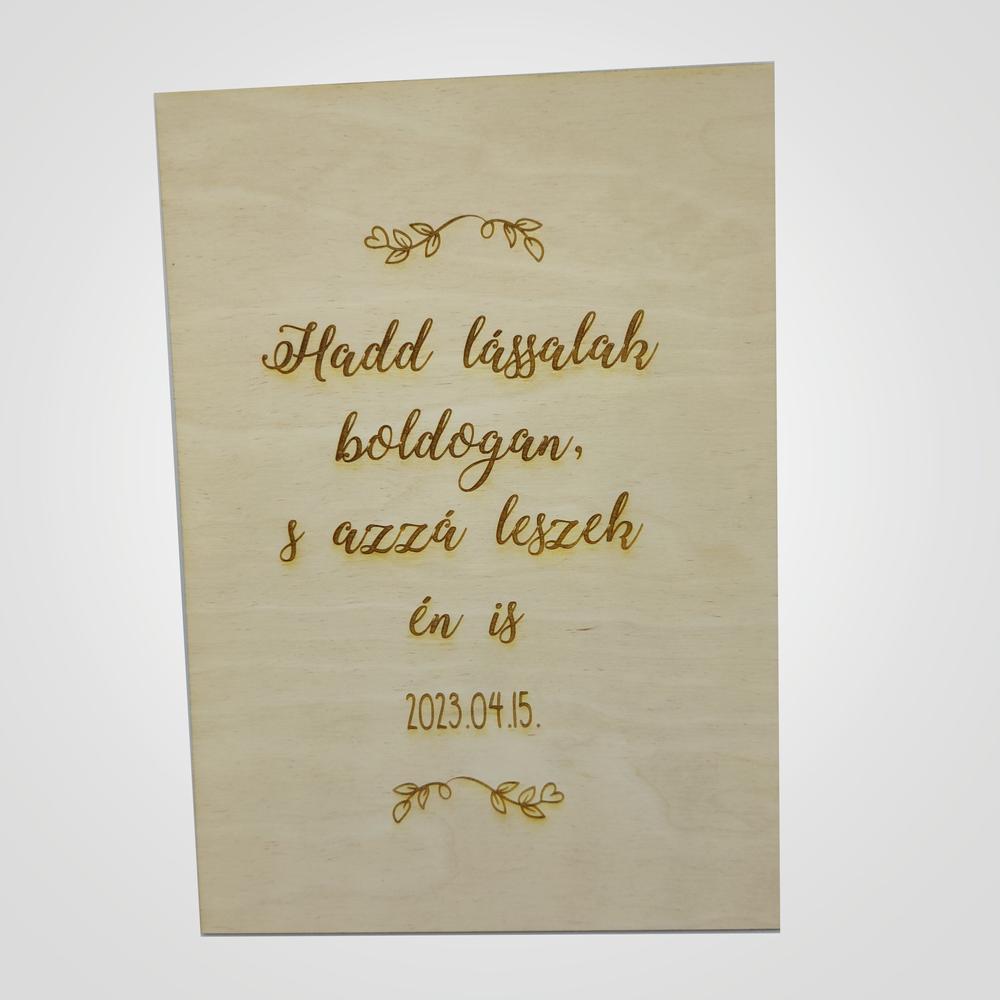 Hadd lássalak
boldogan,
s azzá leszek
én is
2023.04.15.